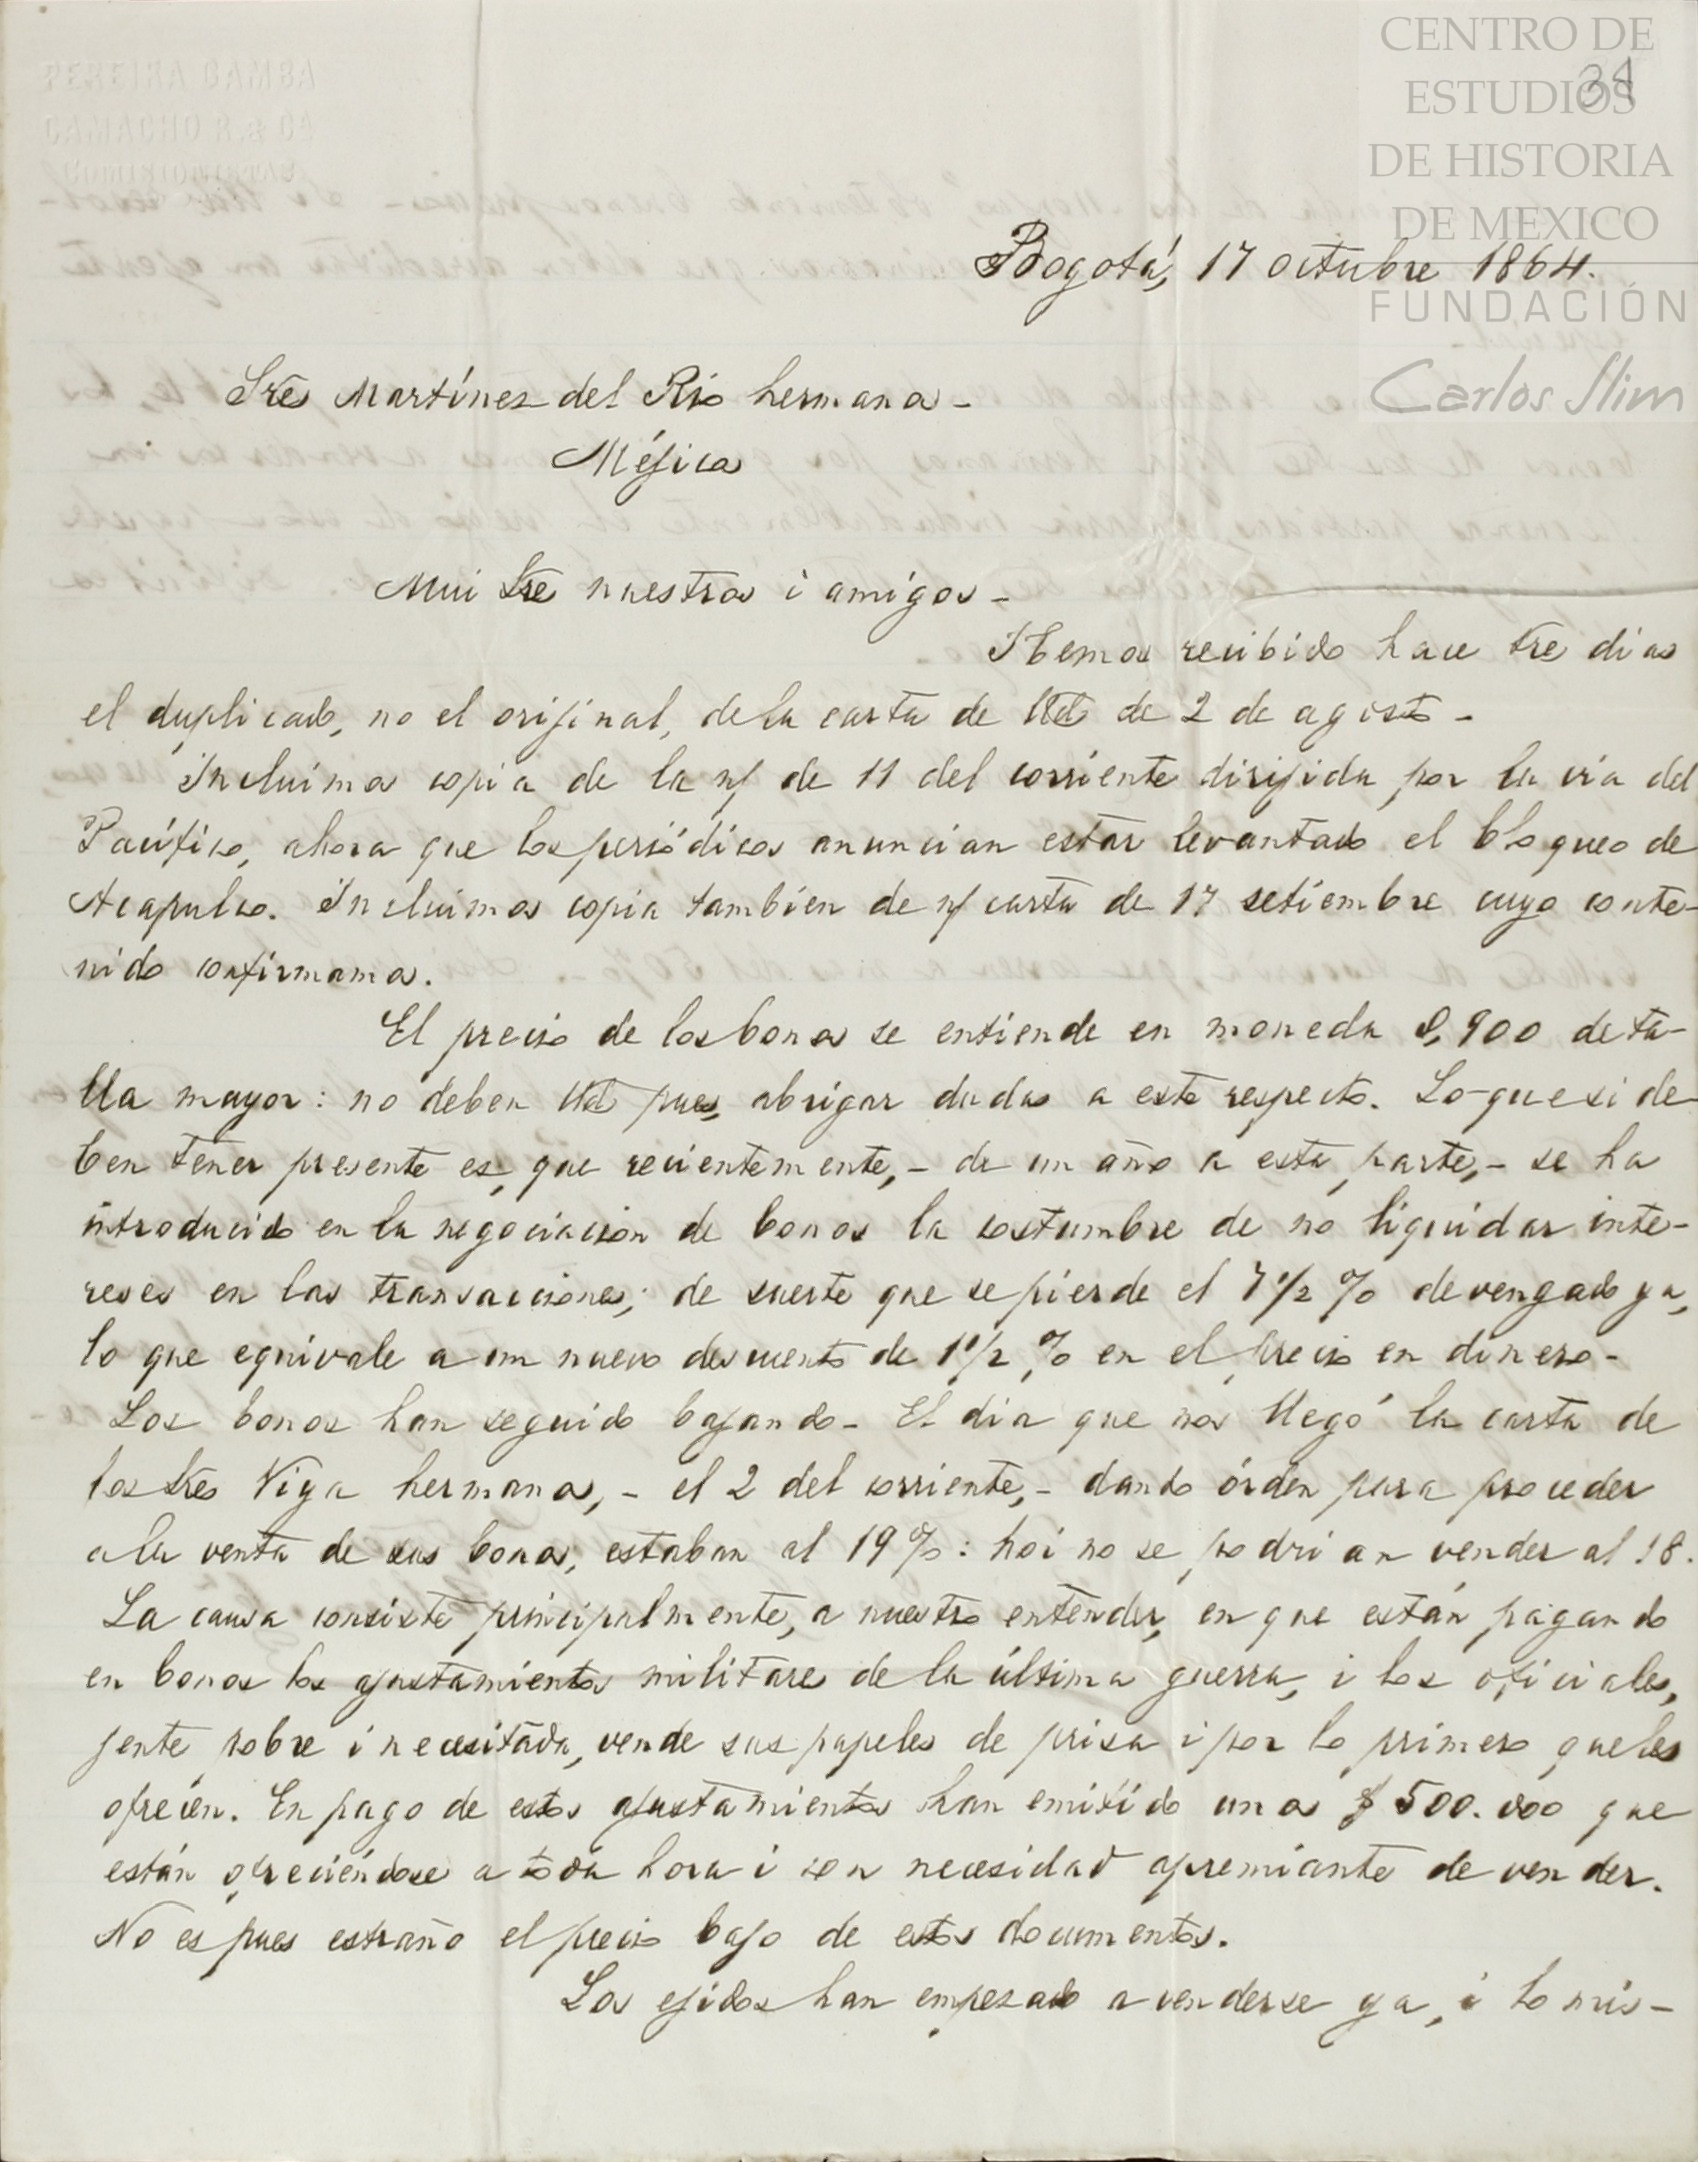 PEREIRA GAMBA
CAMACHO R. & Cª
COMISIONISTAS
CENTRO DE
ESTUDIOS
DE HISTORIA
DE MEXICO
FUNDACIÓN
Carlos Slim
31
Bogotá, 17 octubre 1864.
Sres Martínez del Rio hermanos -
Méjico
Mui Sres nuestros i amigos -
Hemos recibido hace tres dias
el duplicado, no el orijinal, de la carta de Uds de 2 de agosto -
Incluimos copia de la n/ de 11 del corriente dirijida por la via del
Pacífico, ahora que los periódicos anuncian estar levantado el bloqueo de
Acapulco. Incluimos copia tambien de n/ carta de 17 setiembre cuyo conte-
nido confirmamos.
El precio de los bonos se entiende en moneda 0,900 de ta-
lla mayor: no deben Uds pues, abrigar dudas a este respecto. Lo que si de-
ben tener presente es, que recientemente, - de un año a esta parte, - se ha
introducido en la negociacion de bonos la costumbre de no liquidar inte-
reses en las transacciones; de suerte que se pierde el 7 1/2 % devengado ya,
lo que equivale a un nuevo descuento de 1 1/2 % en el precio en dinero -
Los bonos han seguido bajando - El dia que nos llegó la carta de
los Sres Viya hermanos, - el 2 del corriente, - dando órden para proceder
a la venta de sus bonos, estaban al 19 %: hoi no se podrian vender al 18.
La causa consiste principalmente, a nuestro entender, en que están pagando
en bonos los ajustamientos militares de la última guerra, i los oficiales,
jente pobre i necesitada, vende sus papeles de prisa i por lo primero que les
ofrecen. En pago de estos ajustamientos han emitido unos $ 500.000 que
están ofreciéndose a toda hora i con necesidad apremiante de vender.
No es pues estraño el precio bajo de estos documentos.
Los ejidos han empezado a venderse ya, i lo mis-